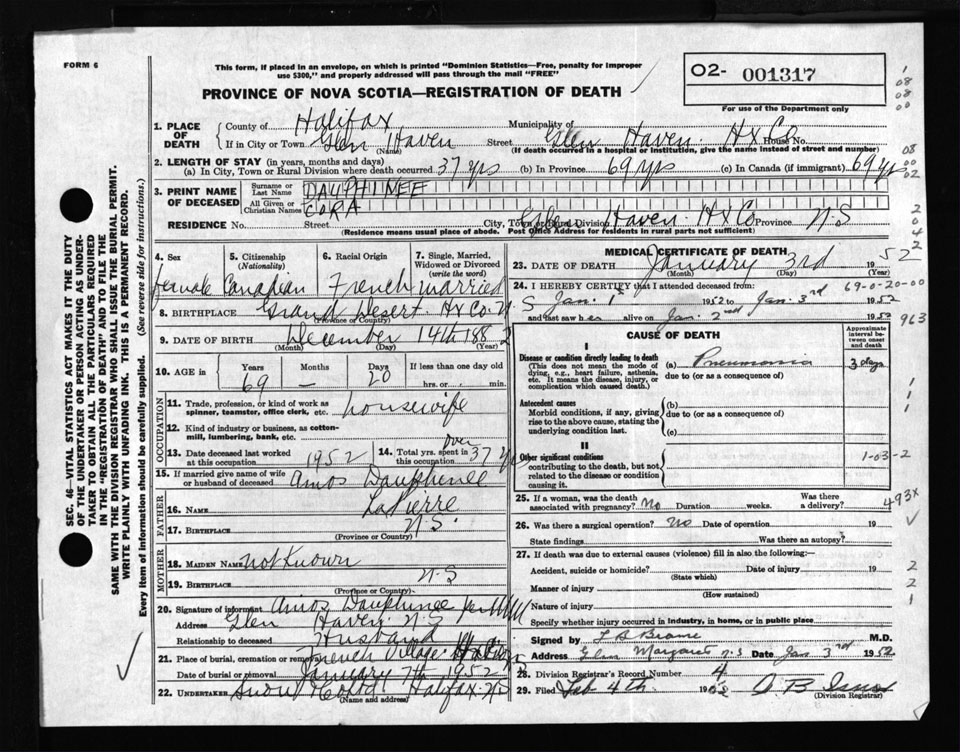 FORM 6
This form, if placed in an envelope, on which is printed "Dominion Statistics—Free, penalty for improper
use $300," and properly addressed will pass through the mail "FREE"
PROVINCE OF NOVA SCOTIA—REGISTRATION OF DEATH
02- 001317
For use of the Department only
1. PLACE OF DEATH
County of Halifax Municipality of
If in City or Town Glen Haven Street Glen Haven Hx Co House No.
(Name) (If death occurred in a hospital or institution, give the name instead of street and number)
2. LENGTH OF STAY (in years, months and days)
(a) In City, Town or Rural Division where death occurred 37 yrs (b) In Province 69 yrs (c) In Canada (if immigrant) 69 yrs
3. PRINT NAME OF DECEASED
Surname or Last Name DAUPHINEE
All Given or Christian Names CORA
RESIDENCE No. Street City, Town or Rural Division Glen Haven Hx Co Province N.S
(Residence means usual place of abode. Post Office Address for residents in rural parts not sufficient)
4. Sex
female
5. Citizenship (Nationality)
Canadian
6. Racial Origin
French
7. Single, Married, Widowed or Divorced (write the word)
married
8. BIRTHPLACE Grand Desert Hx Co. N.S
(Province or Country)
9. DATE OF BIRTH December 14th 1882
(Month) (Day) (Year)
10. AGE in Years 69 Months — Days 20 If less than one day old hrs. or min.
OCCUPATION
11. Trade, profession, or kind of work as spinner, teamster, office clerk, etc. housewife
12. Kind of industry or business, as cotton-mill, lumbering, bank, etc.
13. Date deceased last worked at this occupation 1952
14. Total yrs. spent in this occupation over 37 yrs
15. If married give name of wife or husband of deceased Amos Dauphinee
FATHER
16. NAME LaPierre
17. BIRTHPLACE N.S.
(Province or Country)
MOTHER
18. MAIDEN NAME not Known
19. BIRTHPLACE N.S
(Province or Country)
20. Signature of informant Amos Dauphinee
Address Glen Haven N.S
Relationship to deceased Husband
21. Place of burial, cremation or removal French Village
Date of burial or removal January 7th 1952
22. UNDERTAKER Snow Halifax N.S
(Name and address)
MEDICAL CERTIFICATE OF DEATH
23. DATE OF DEATH January 3rd 1952
(Month) (Day) (Year)
24. I HEREBY CERTIFY that I attended deceased from 69-0-20-00
Jan. 1st 1952 to Jan. 3rd 1952
and last saw her alive on Jan. 2nd 1952
963
CAUSE OF DEATH
Approximate interval between onset and death
I
Disease or condition directly leading to death
(This does not mean the mode of dying, e.g., heart failure, asthenia, etc. It means the disease, injury, or complication which caused death.)
(a) Pneumonia 3 days
due to (or as a consequence of)
Antecedent causes
Morbid conditions, if any, giving rise to the above cause, stating the underlying condition last.
(b)
due to (or as a consequence of)
(c)
II
Other significant conditions
contributing to the death, but not related to the disease or condition causing it.
1-03-2
25. If a woman, was the death associated with pregnancy? No Duration weeks. Was there a delivery?
493X
26. Was there a surgical operation? No Date of operation 19
State findings Was there an autopsy?
27. If death was due to external causes (violence) fill in also the following:—
Accident, suicide or homicide? Date of injury 19
(State which)
Manner of injury
(How sustained)
Nature of injury
Specify whether injury occurred in industry, in home, or in public place
Signed by M.D.
Address Glen Margaret N.S Date Jan 3rd 1952
28. Division Registrar's Record Number 4
29. Filed Feb 4th 1952
(Division Registrar)
SEC. 46—VITAL STATISTICS ACT MAKES IT THE DUTY
OF THE UNDERTAKER OR PERSON ACTING AS UNDER-
TAKER TO OBTAIN ALL THE PARTICULARS REQUIRED
IN THE "REGISTRATION OF DEATH" AND TO FILE THE
SAME WITH THE DIVISION REGISTRAR WHO SHALL ISSUE THE BURIAL PERMIT.
WRITE PLAINLY WITH UNFADING INK. THIS IS A PERMANENT RECORD.
Every item of information should be carefully supplied. (See reverse side for instructions.)